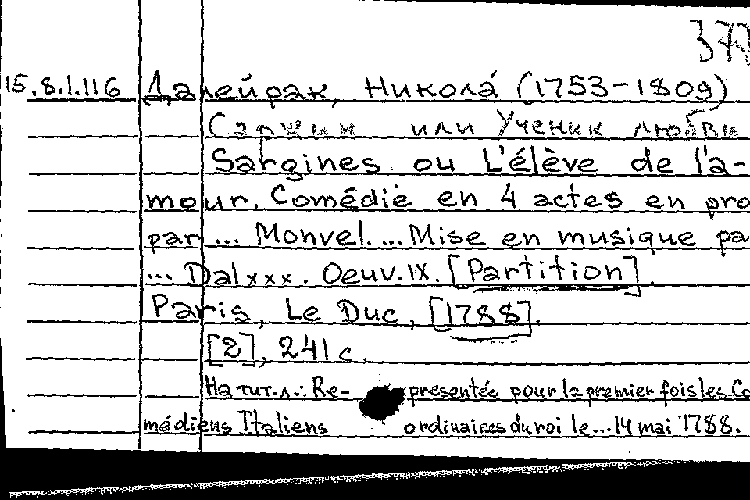 377
15.8.1.116 Далейрак, Никола́ (1753-1809)
Саржин или Ученик любви
Sargines ou L'élève de l'a-
mour. Comédie en 4 actes en pro
par ... Monvel. ... Mise en musique pa
... Dalxxx. Oeuv. IX. [Partition].
Paris, Le Duc, [1788].
[2], 241 с.
На тит. л.: Re- présentée pour la premier fois les Co
médiens Italiens ordinaires du roi le ... 14 mai 1788.